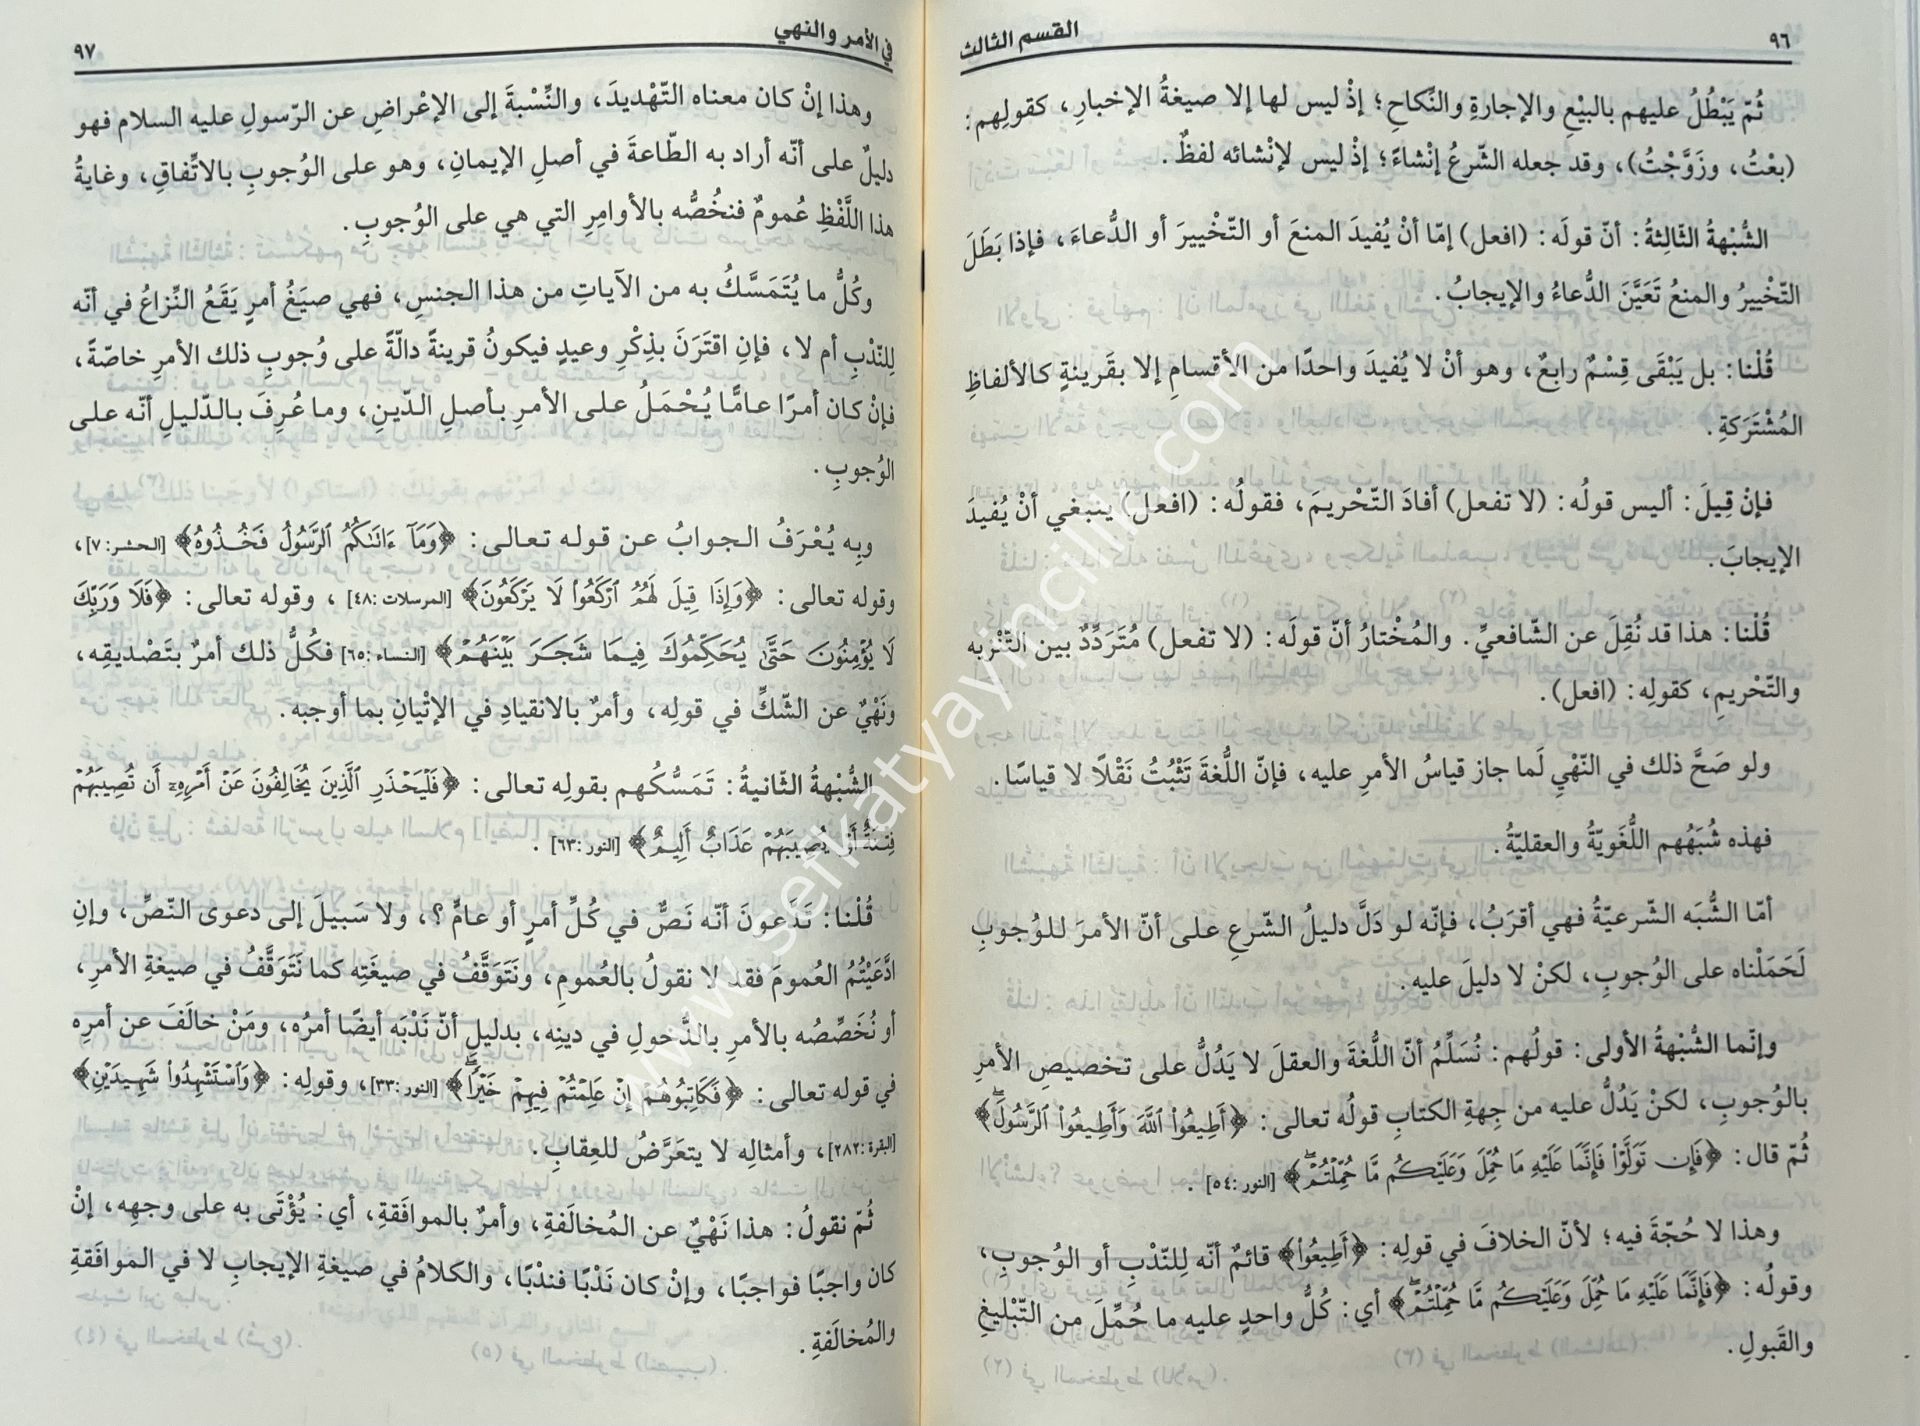 ٩٦
القسم الثالث
ثُمّ يَبْطُلُ عليهم بالبيْعِ والإجارةِ والنِّكاحِ؛ إذْ ليس لها إلا صيغةُ الإخبارِ، كقولِهم:
(بعْتُ، وزَوَّجْتُ)، وقد جعله الشّرعُ إنْشاءً؛ إذْ ليس لإنْشائه لفظٌ.
الشُّبْهةُ الثّالِثةُ: أنّ قولَه: (افعل) إمّا أنْ يُفيدَ المنعَ أو التّخْييرَ أو الدُّعاءَ، فإذا بَطَلَ
التّخْييرُ والمنعُ تَعَيَّنَ الدُّعاءُ والإيجابُ.
قُلْنا: بل يَبْقَى قِسْمٌ رابعٌ، وهو أنْ لا يُفيدَ واحدًا من الأقسامِ إلا بقَرينةٍ كالألفاظِ
المُشْتَرَكةِ.
فإنْ قِيلَ: أليس قولُه: (لا تفعل) أفادَ التّحْريمَ، فقولُه: (افعل) ينبغي أنْ يُفيدَ
الإيجابَ.
قُلْنا: هذا قد نُقِلَ عن الشّافعيِّ. والمُخْتارُ أنّ قولَه: (لا تفعل) مُتَردِّدٌ بين التّنْزيه
والتّحْريمِ، كقولِه: (افعل).
ولو صَحَّ ذلك في النّهْي لَما جاز قياسُ الأمرِ عليه، فإنّ اللُّغةَ تَثْبُتُ نَقْلًا لا قياسًا.
فهذه شُبَهُهم اللُّغَويّةُ والعقليّةُ.
أمّا الشُّبَه الشّرعيّةُ فهي أقرَبُ، فإنّه لو دَلَّ دليلُ الشّرعِ على أنّ الأمرَ للوُجوبِ
لَحَمَلْناه على الوُجوبِ، لكنْ لا دليلَ عليه.
وإنّما الشُّبْهةُ الأولى: قولُهم: نُسَلِّمُ أنّ اللُّغةَ والعقلَ لا يَدُلُّ على تخصيصِ الأمرِ
بالوُجوبِ، لكنْ يَدُلُّ عليه من جِهةِ الكتابِ قولُه تعالى: ﴿أَطِيعُوا۟ ٱللَّهَ وَأَطِيعُوا۟ ٱلرَّسُولَۖ﴾
ثُمّ قال: ﴿فَإِن تَوَلَّوْا۟ فَإِنَّمَا عَلَيْهِ مَا حُمِّلَ وَعَلَيْكُم مَّا حُمِّلْتُمْۖ﴾ [النور:٥٤].
وهذا لا حُجّةَ فيه؛ لأنّ الخلافَ في قولِه: ﴿أَطِيعُوا۟﴾ قائمٌ أنّه لِلنّدْبِ أو الوُجوبِ،
وقولُه: ﴿فَإِنَّمَا عَلَيْهِ مَا حُمِّلَ وَعَلَيْكُم مَّا حُمِّلْتُمْۖ﴾ أي: كُلُّ واحدٍ عليه ما حُمِّلَ من التّبْليغِ
والقَبولِ.
في الأمر والنهي
٩٧
وهذا إنْ كان معناه التّهْديدَ، والنِّسْبةَ إلى الإعْراضِ عن الرّسولِ عليه السلام فهو
دليلٌ على أنّه أراد به الطّاعةَ في أصلِ الإيمانِ، وهو على الوُجوبِ بالاتِّفاقِ، وغايةُ
هذا اللَّفْظِ عُمومٌ فنخُصُّه بالأوامِرِ التي هي على الوُجوبِ.
وكُلُّ ما يُتَمَسَّكُ به من الآياتِ من هذا الجنسِ، فهي صيَغُ أمرٍ يَقَعُ النِّزاعُ في أنّه
لِلنّدْبِ أم لا، فإنِ اقتَرَنَ بذِكْرِ وعيدٍ فيكونُ قرينةً دالّةً على وُجوبِ ذلك الأمرِ خاصّةً،
فإنْ كان أمرًا عامًّا يُحْمَلُ على الأمرِ بأصلِ الدّينِ، وما عُرِفَ بالدّليلِ أنّه على
الوُجوبِ.
وبِه يُعْرَفُ الجوابُ عن قوله تعالى: ﴿وَمَآ ءَاتَىٰكُمُ ٱلرَّسُولُ فَخُذُوهُ﴾ [الحشر:٧]،
وقوله تعالى: ﴿وَإِذَا قِيلَ لَهُمُ ٱرْكَعُوا۟ لَا يَرْكَعُونَ﴾ [المرسلات:٤٨]، وقوله تعالى: ﴿فَلَا وَرَبِّكَ
لَا يُؤْمِنُونَ حَتَّىٰ يُحَكِّمُوكَ فِيمَا شَجَرَ بَيْنَهُمْ﴾ [النساء:٦٥] فكُلُّ ذلك أمرٌ بتَصْديقِه،
ونَهْيٌ عن الشّكِّ في قولِه، وأمرٌ بالانقيادِ في الإتْيانِ بما أوجبه.
الشُّبْهةُ الثّانيةُ: تَمَسُّكُهم بقولِه تعالى: ﴿فَلْيَحْذَرِ ٱلَّذِينَ يُخَالِفُونَ عَنْ أَمْرِهِۦٓ أَن تُصِيبَهُمْ
فِتْنَةٌ أَوْ يُصِيبَهُمْ عَذَابٌ أَلِيمٌ﴾ [النور:٦٣].
قُلْنا: تَدّعونَ أنّه نَصٌّ في كُلِّ أمرٍ أو عامٌّ؟، ولا سَبيلَ إلى دعوى النّصِّ، وإنِ
ادَّعَيْتُمُ العُمومَ فقد لا نقولُ بالعُمومِ، ونَتَوَقَّفُ في صيغَتِه كما نَتَوَقَّفُ في صيغةِ الأمرِ،
أو نُخَصِّصُه بالأمرِ بالدُّخولِ في دينِه، بدليلِ أنّ نَدْبَه أيضًا أمرُه، ومَنْ خالَفَ عن أمرِه
في قوله تعالى: ﴿فَكَاتِبُوهُمْ إِنْ عَلِمْتُمْ فِيهِمْ خَيْرًاۖ﴾ [النور:٣٣]، وقولِه: ﴿وَٱسْتَشْهِدُوا۟ شَهِيدَيْنِ﴾
[البقرة:٢٨٢]، وأمثالِه لا يتعَرَّضُ للعِقابِ.
ثُمّ نقولُ: هذا نَهْيٌ عن المُخالَفةِ، وأمرٌ بالموافَقةِ، أي: يُؤْتَى به على وجهِه، إنْ
كان واجبًا فواجبًا، وإنْ كان نَدْبًا فندْبًا، والكلامُ في صيغةِ الإيجابِ لا في الموافَقةِ
والمُخالَفةِ.
www.sefkatyayincilik.com